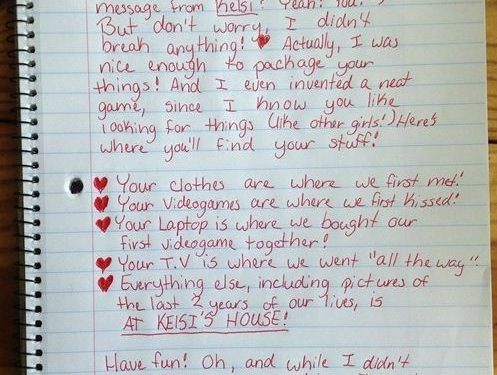 message from Kelsi? Yeah! You!
But don't worry, I didn't
break anything! ♥ Actually, I was
nice enough to package your
things! And I even invented a neat
game, since I know you like
looking for things (like other girls!) Here's
where you'll find your stuff!
♥ Your clothes are where we first met!
♥ Your Videogames are where we first kissed!
♥ Your Laptop is where we bought our
first videogame together!
♥ Your T.V is where we went "all the way"
♥ Everything else, including pictures of
the last 2 years of our lives, is
AT KELSI'S HOUSE!
Have fun! Oh, and while I didn't